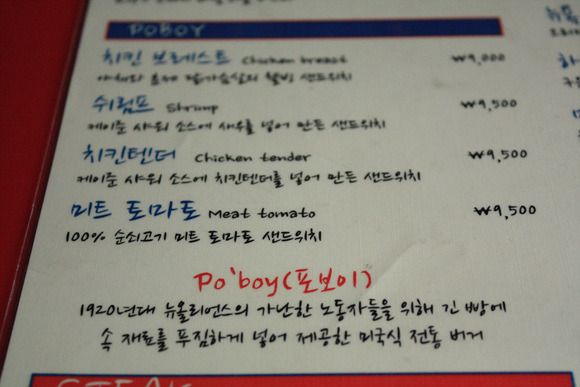 POBOY
치킨 브레스트 Chicken breast ₩9,000
야채와 닭가슴살의 웰빙 샌드위치
쉬림프 Shrimp ₩9,500
케이준 샤워 소스에 새우를 넣어 만든 샌드위치
치킨텐더 Chicken tender ₩9,500
케이준 샤워 소스에 치킨텐더를 넣어 만든 샌드위치
미트 토마토 Meat tomato ₩9,500
100% 순쇠고기 미트 토마토 샌드위치
Po'boy(포보이)
1920년대 뉴올리언스의 가난한 노동자들을 위해 긴 빵에
속 재료를 푸짐하게 넣어 제공한 미국식 전통 버거
STEAK